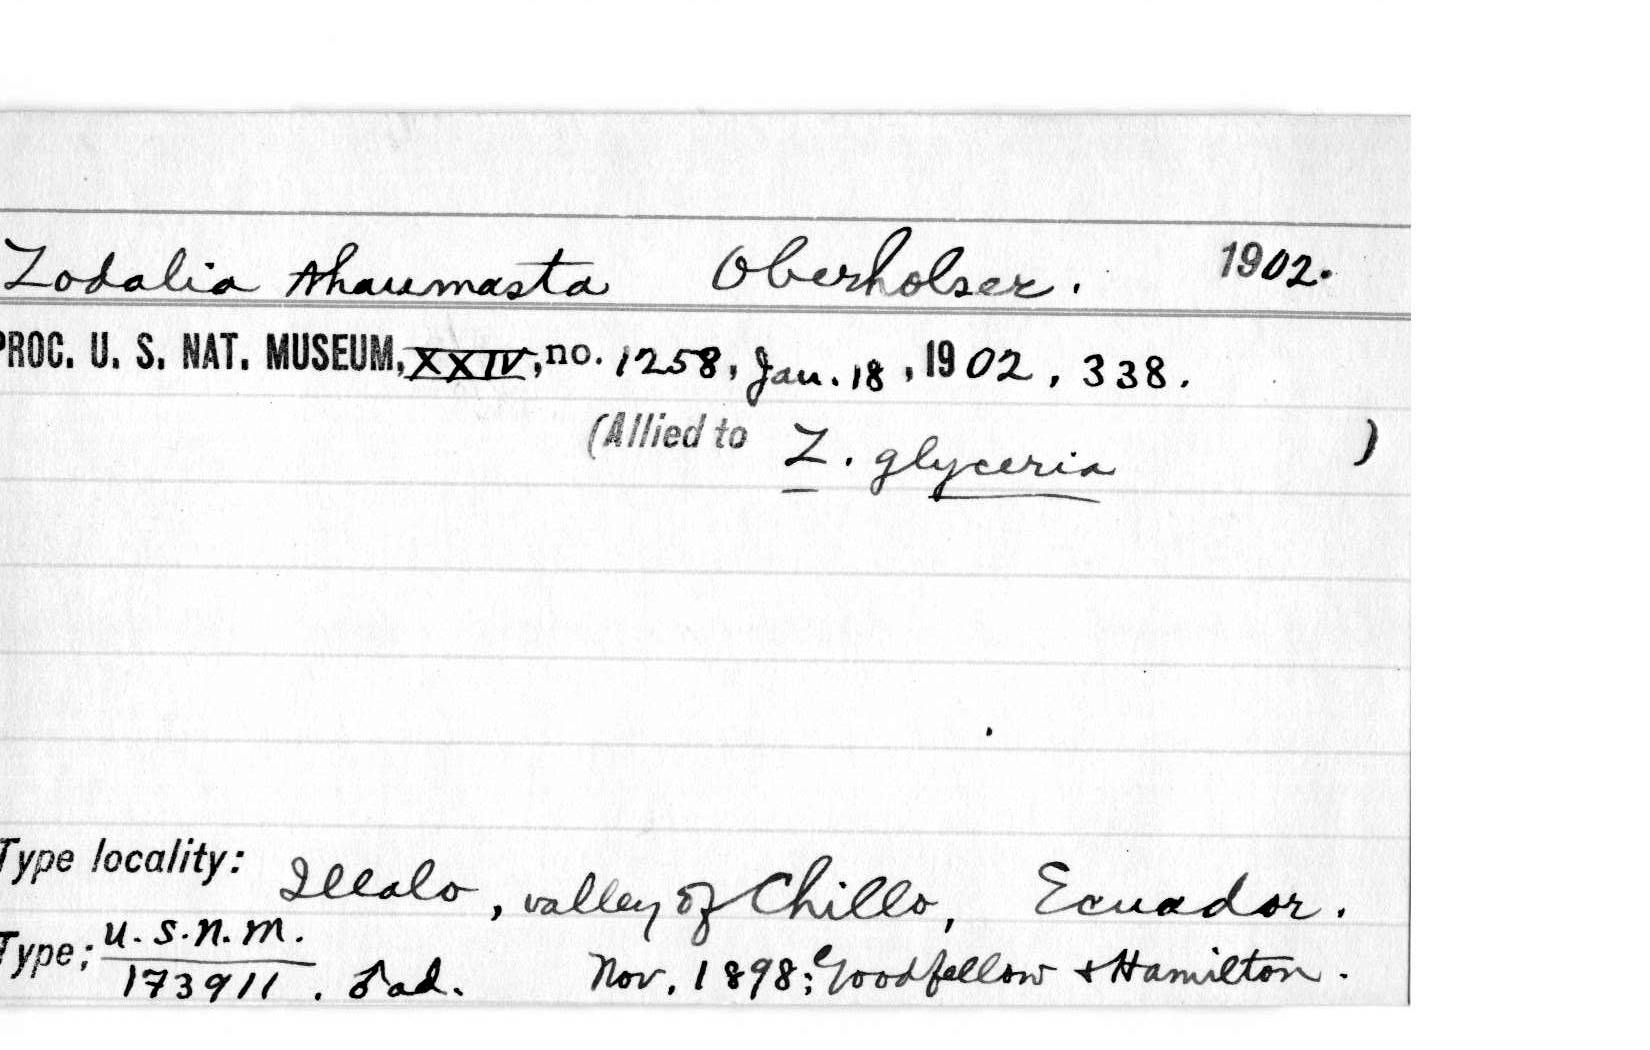 Zodalia thaumasta Oberholser. 1902.
PROC. U. S. NAT. MUSEUM, XXIV, no. 1258, Jan. 18, 1902, 338.
(Allied to Z. glyceria )
Type locality: Illalo, valley of Chillo, Ecuador.
Type; U.S.N.M.
173911. ♂ ad. Nov. 1898; Goodfellow + Hamilton.